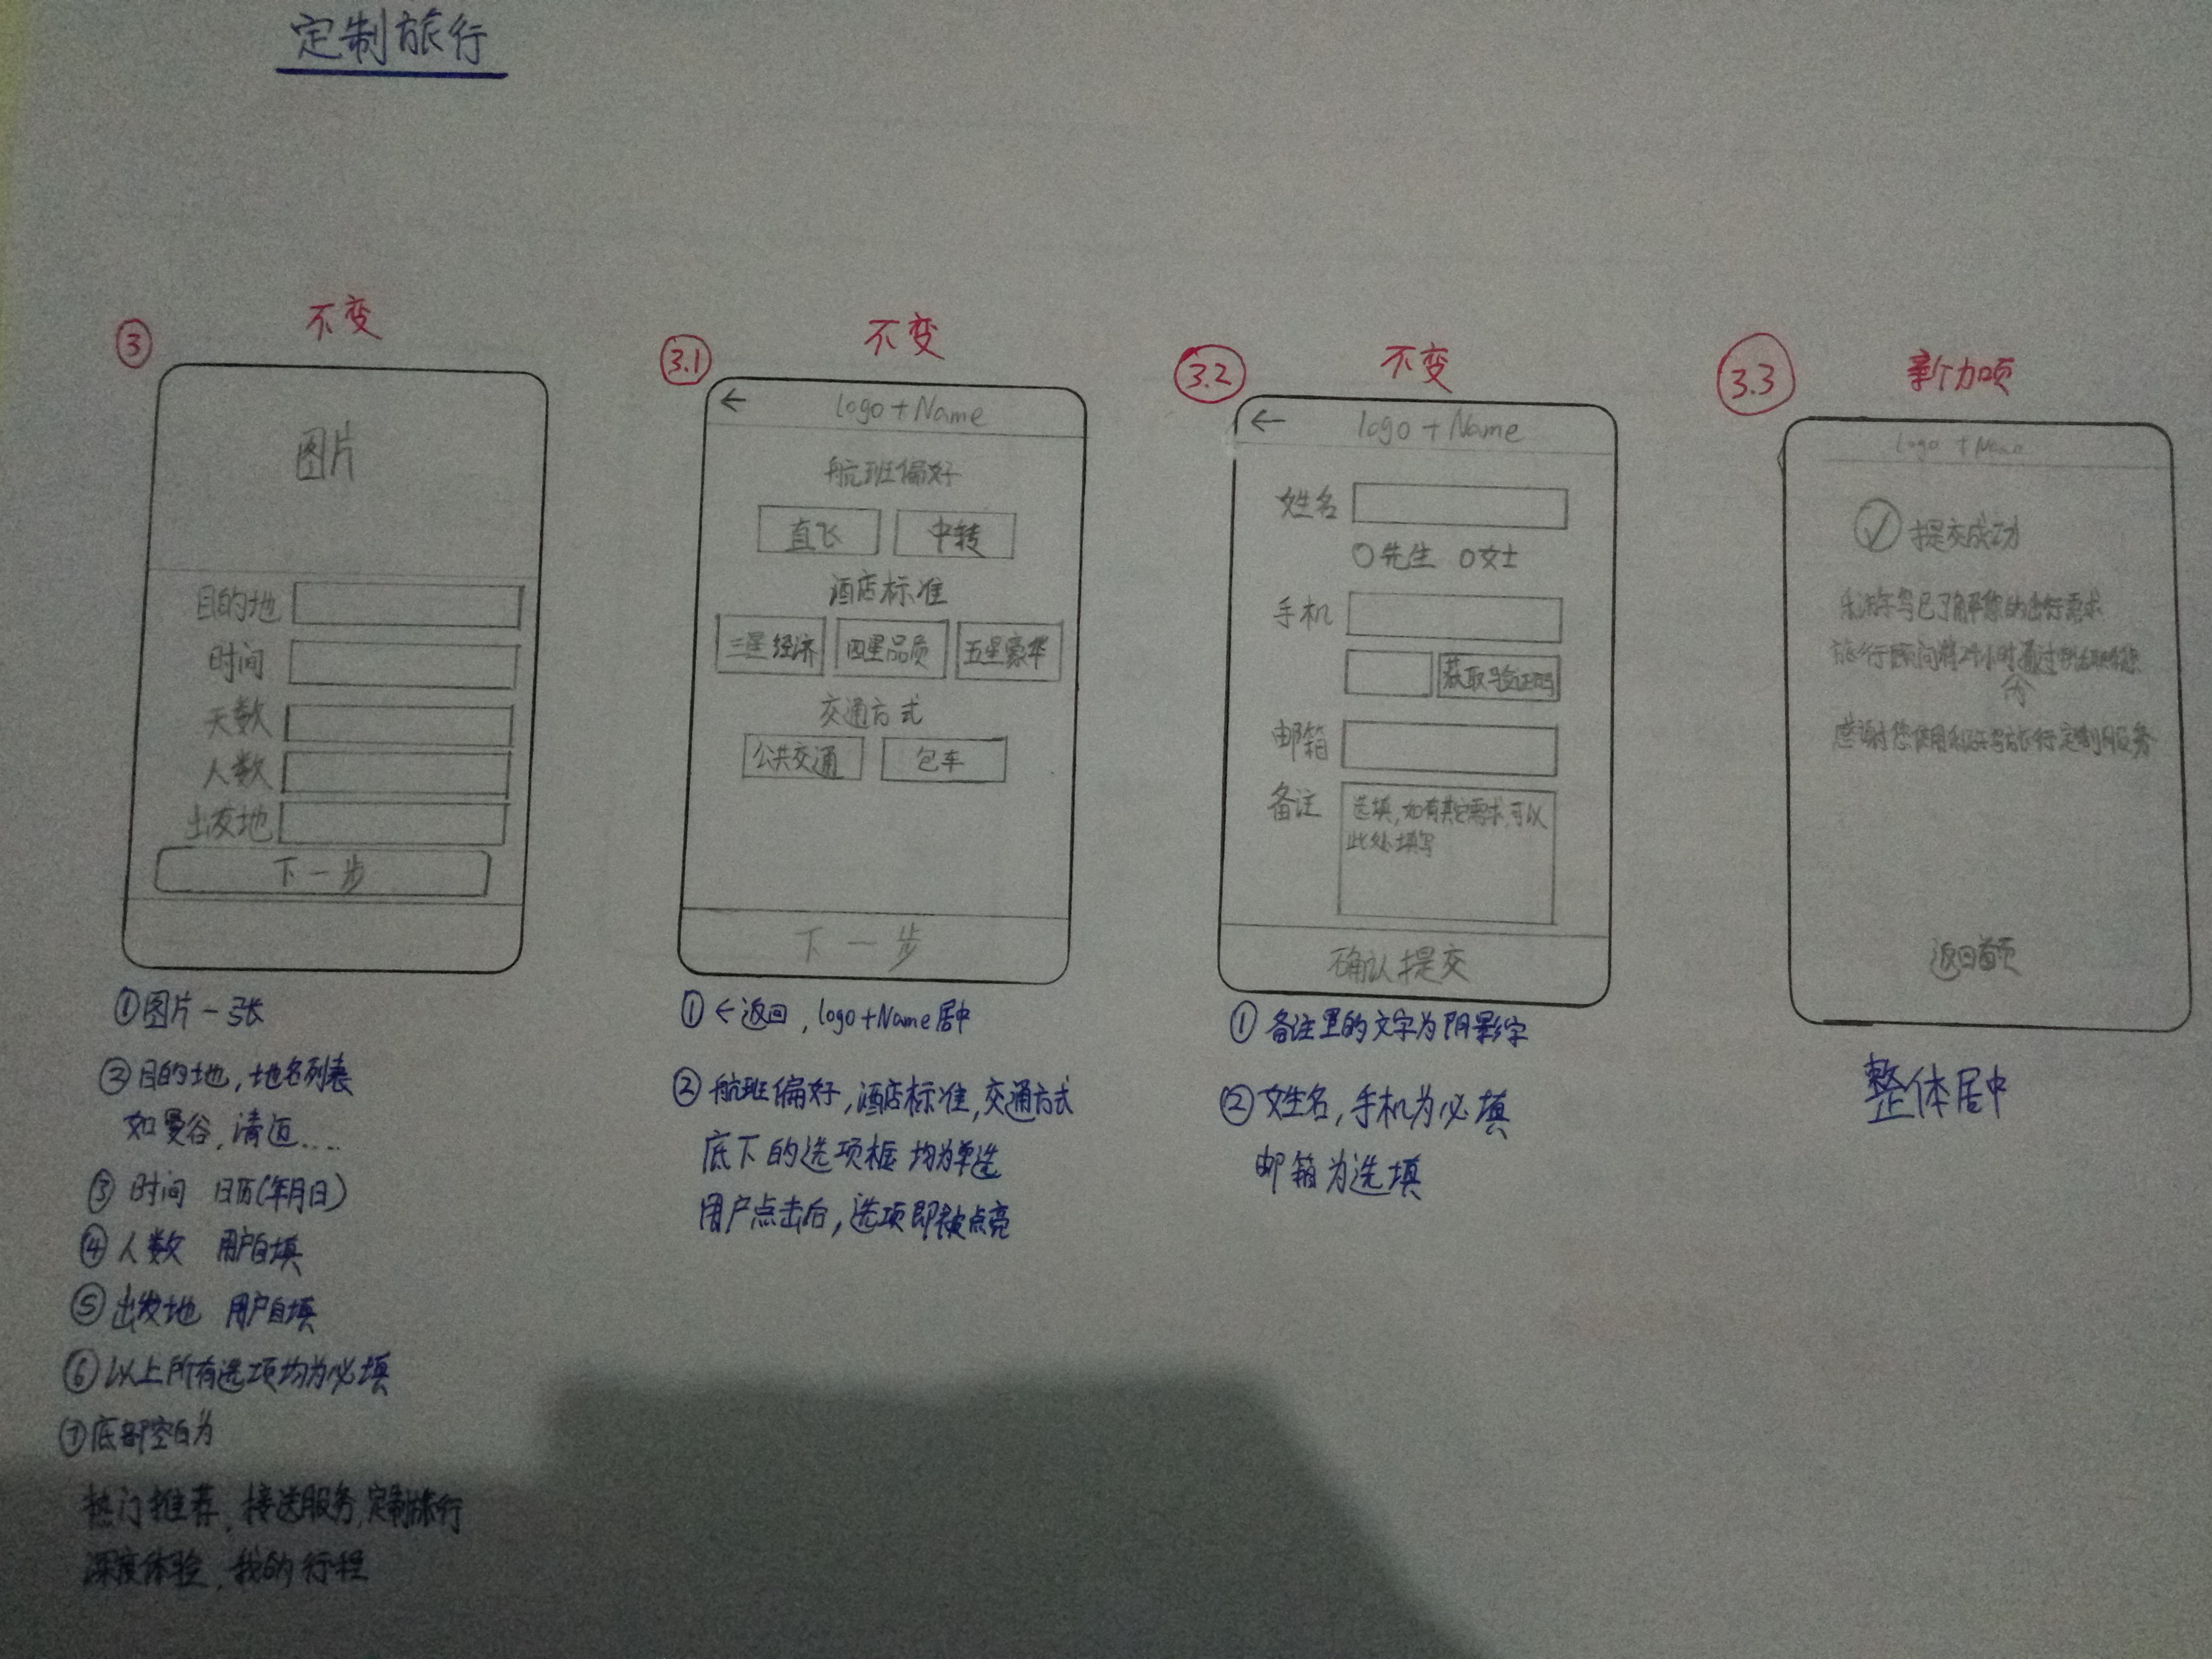 定制旅行
③
不变
图片
目的地
时间
天数
人数
出发地
下一步
①图片一张
②目的地,地名列表
如曼谷,清迈....
③时间 日历(年月日)
④人数 用户自填
⑤出发地 用户自填
⑥以上所有选项均为必填
⑦底部空白为
热门推荐,接送服务,定制旅行
深度体验,我的行程
3.1
不变
← logo+Name
航班偏好
直飞 中转
酒店标准
三星经济 四星品质 五星豪华
交通方式
公共交通 包车
下一步
①←返回,logo+Name居中
②航班偏好,酒店标准,交通方式
底下的选项框均为单选
用户点击后,选项即被点亮
3.2
不变
← logo+Name
姓名
○先生 ○女士
手机
获取验证码
邮箱
备注 选填,如有其它需求,可以
此处填写
确认提交
①备注里的文字为阴影字
②姓名,手机为必填
邮箱为选填
3.3
新加项
logo + Name
✓ 提交成功
已了解您的出行需求
旅行顾问将24小时 通过
内
感谢您使用 旅行定制服务
返回首页
整体居中